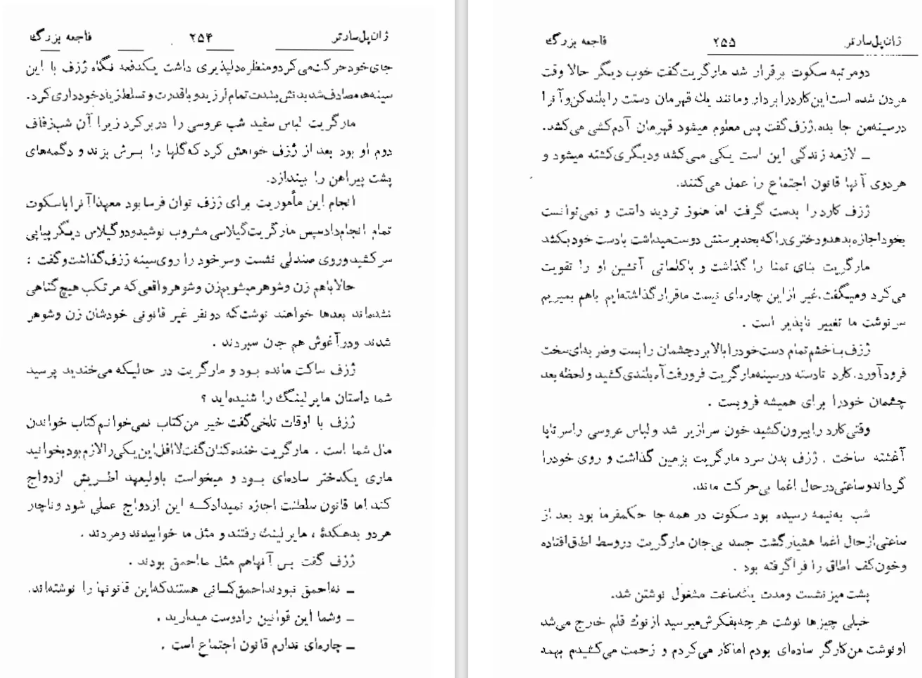 ژان پل سارتر ۲۵۴ فاجعه بزرگ
جای خود حرکت می‌کرد و منظره دلپذیری داشت یکدفعه نگاه ژزف با این
سینه‌ها مصادف شد بدنش بشدت تمام لرزید و با قدرت و تسلط زیاد خودداری کرد.
مارگریت لباس سفید شب عروسی را در بر کرد زیرا آن شب زفاف
دوم او بود بعد از ژزف خواهش کرد که گلها را بسرش بزند و دگمه‌های
پشت پیراهن را بیندازد.
انجام این مأموریت برای ژزف توان فرسا بود معهذا آنرا با سکوت
تمام انجام داد سپس مارگریت گیلاسی مشروب نوشید و دو گیلاس دیگر پیاپی
سر کشید و روی صندلی نشست و سر خود را روی سینه ژزف گذاشت و گفت :
حالا باهم زن و شوهر میشویم زن و شوهر واقعی که مرتکب هیچ گناهی
نشده‌اند بعدها خواهند نوشت که دو نفر غیر قانونی خودشان زن و شوهر
شدند و در آغوش هم جان سپردند .
ژزف ساکت مانده بود و مارگریت در حالیکه می‌خندید پرسید
شما داستان مایرلینگ را شنیده‌اید ؟
ژزف با اوقات تلخی گفت خیر من کتاب نمی‌خوانم کتاب خواندن
مال شما است . مارگریت خنده کنان گفت لااقل این یکی را لازم بود بخوانید
ماری یکدختر ساده‌ای بود و میخواست باولیعهد اطریش ازدواج
کند اما قانون سلطنت اجازه نمیداد که این ازدواج عملی شود و ناچار
هر دو بدهکدهٔ ، مایرلینگ رفتند و مثل ما خوابیدند و مردند .
ژزف گفت پس آنها هم مثل ما احمق بودند .
ـ نه احمق نبودند احمق کسانی هستند که این قانونها را نوشته‌اند.
ـ و شما این قوانین را دوست میدارید .
ـ چاره‌ای ندارم قانون اجتماع است .
ژان پل سارتر ۲۵۵ فاجعه بزرگ
دو مرتبه سکوت بر قرار شد مارگریت گفت خوب دیگر حالا وقت
مردن شده است این کارد را بردار و مانند یك قهرمان دستت را بلند کن و آنرا
در سینه من جا بده. ژزف گفت پس معلوم میشود قهرمان آدم کشی می‌کشد.
ـ لازمه زندگی این است یکی می‌کشد و دیگری کشته میشود و
هر دوی آنها قانون اجتماع را عمل می‌کنند.
ژزف کارد را بدست گرفت اما هنوز تردید داشت و نمی‌توانست
بخود اجازه بدهد دختری را که بحد پرستش دوست میداشت با دست خود بکشد
مارگریت بنای تمنا را گذاشت و با کلماتی آتشین او را تقویت
می‌کرد و میگفت. غیر از این چاره‌ای نیست ما قرار گذاشته‌ایم باهم بمیریم
سرنوشت ما تغییر ناپذیر است .
ژزف با خشم تمام دست خود را بالا برد چشمان را بست و ضربه‌ای سخت
فرود آورد. کارد تا دسته در سینه مارگریت فرو رفت آه بلندی کشید و لحظه بعد
چشمان خود را برای همیشه فرو بست .
وقتی کارد را بیرون کشید خون سرازیر شد و لباس عروسی را سرتاپا
آغشته ساخت . ژزف بدن سرد مارگریت بزمین گذاشت و روی خود را
گرداند و ساعتی در حال اغما بی‌حرکت ماند.
شب به نیمه رسیده بود سکوت در همه جا حکمفرما بود بعد از
ساعتی از حال اغما هشیار گشت جسد بی‌جان مارگریت در وسط اطاق افتاده
و خون کف اطاق را فرا گرفته بود .
پشت میز نشست و مدت یکساعت مشغول نوشتن شد.
خیلی چیزها نوشت هر چه بفکرش میرسید از نوك قلم خارج می‌شد
او نوشت من کارگر ساده‌ای بودم اما کار می‌کردم و زحمت می‌کشیدم بهمه